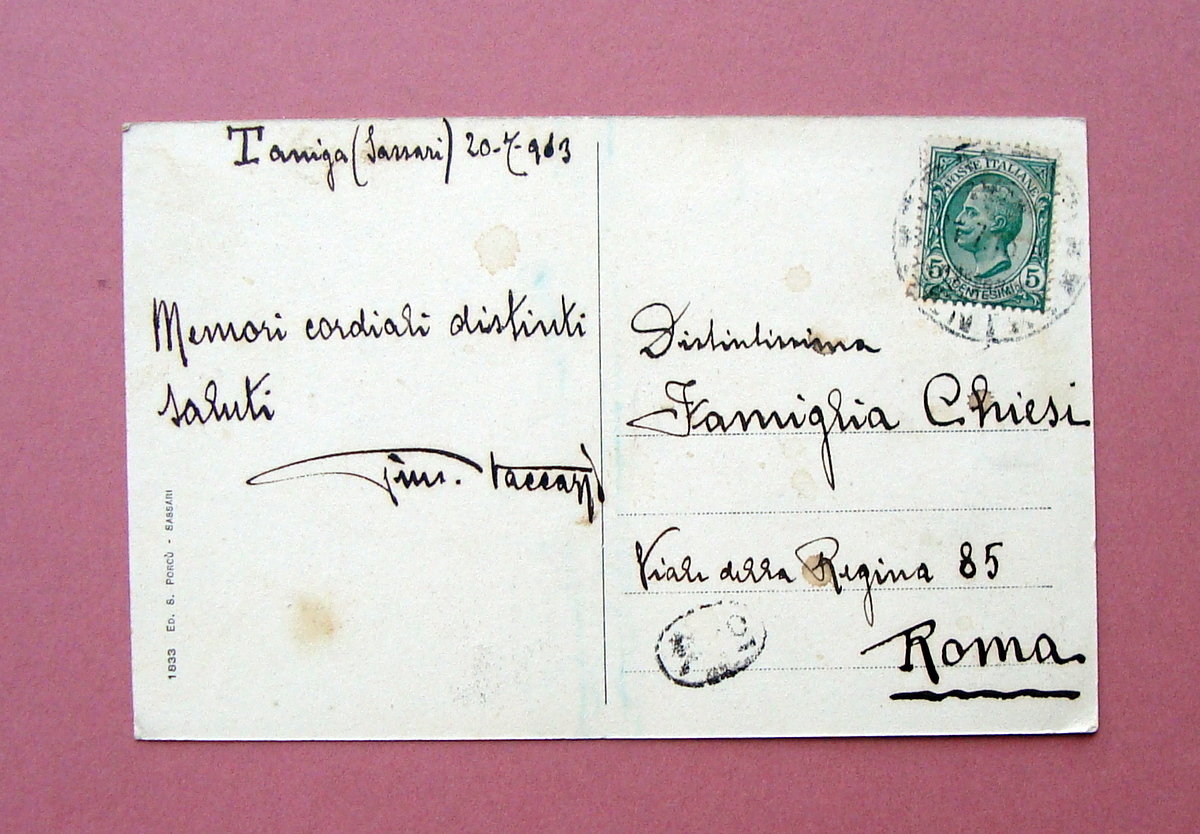 Taniga (Sassari) 20-7-913
Memori cordiali distinti
saluti
Vaccari
1833 ED. S. PORCÙ - SASSARI
POSTE ITALIANE
5 CENTESIMI 5
Distintissima
Famiglia Chiesi
Viale della Regina 85
Roma